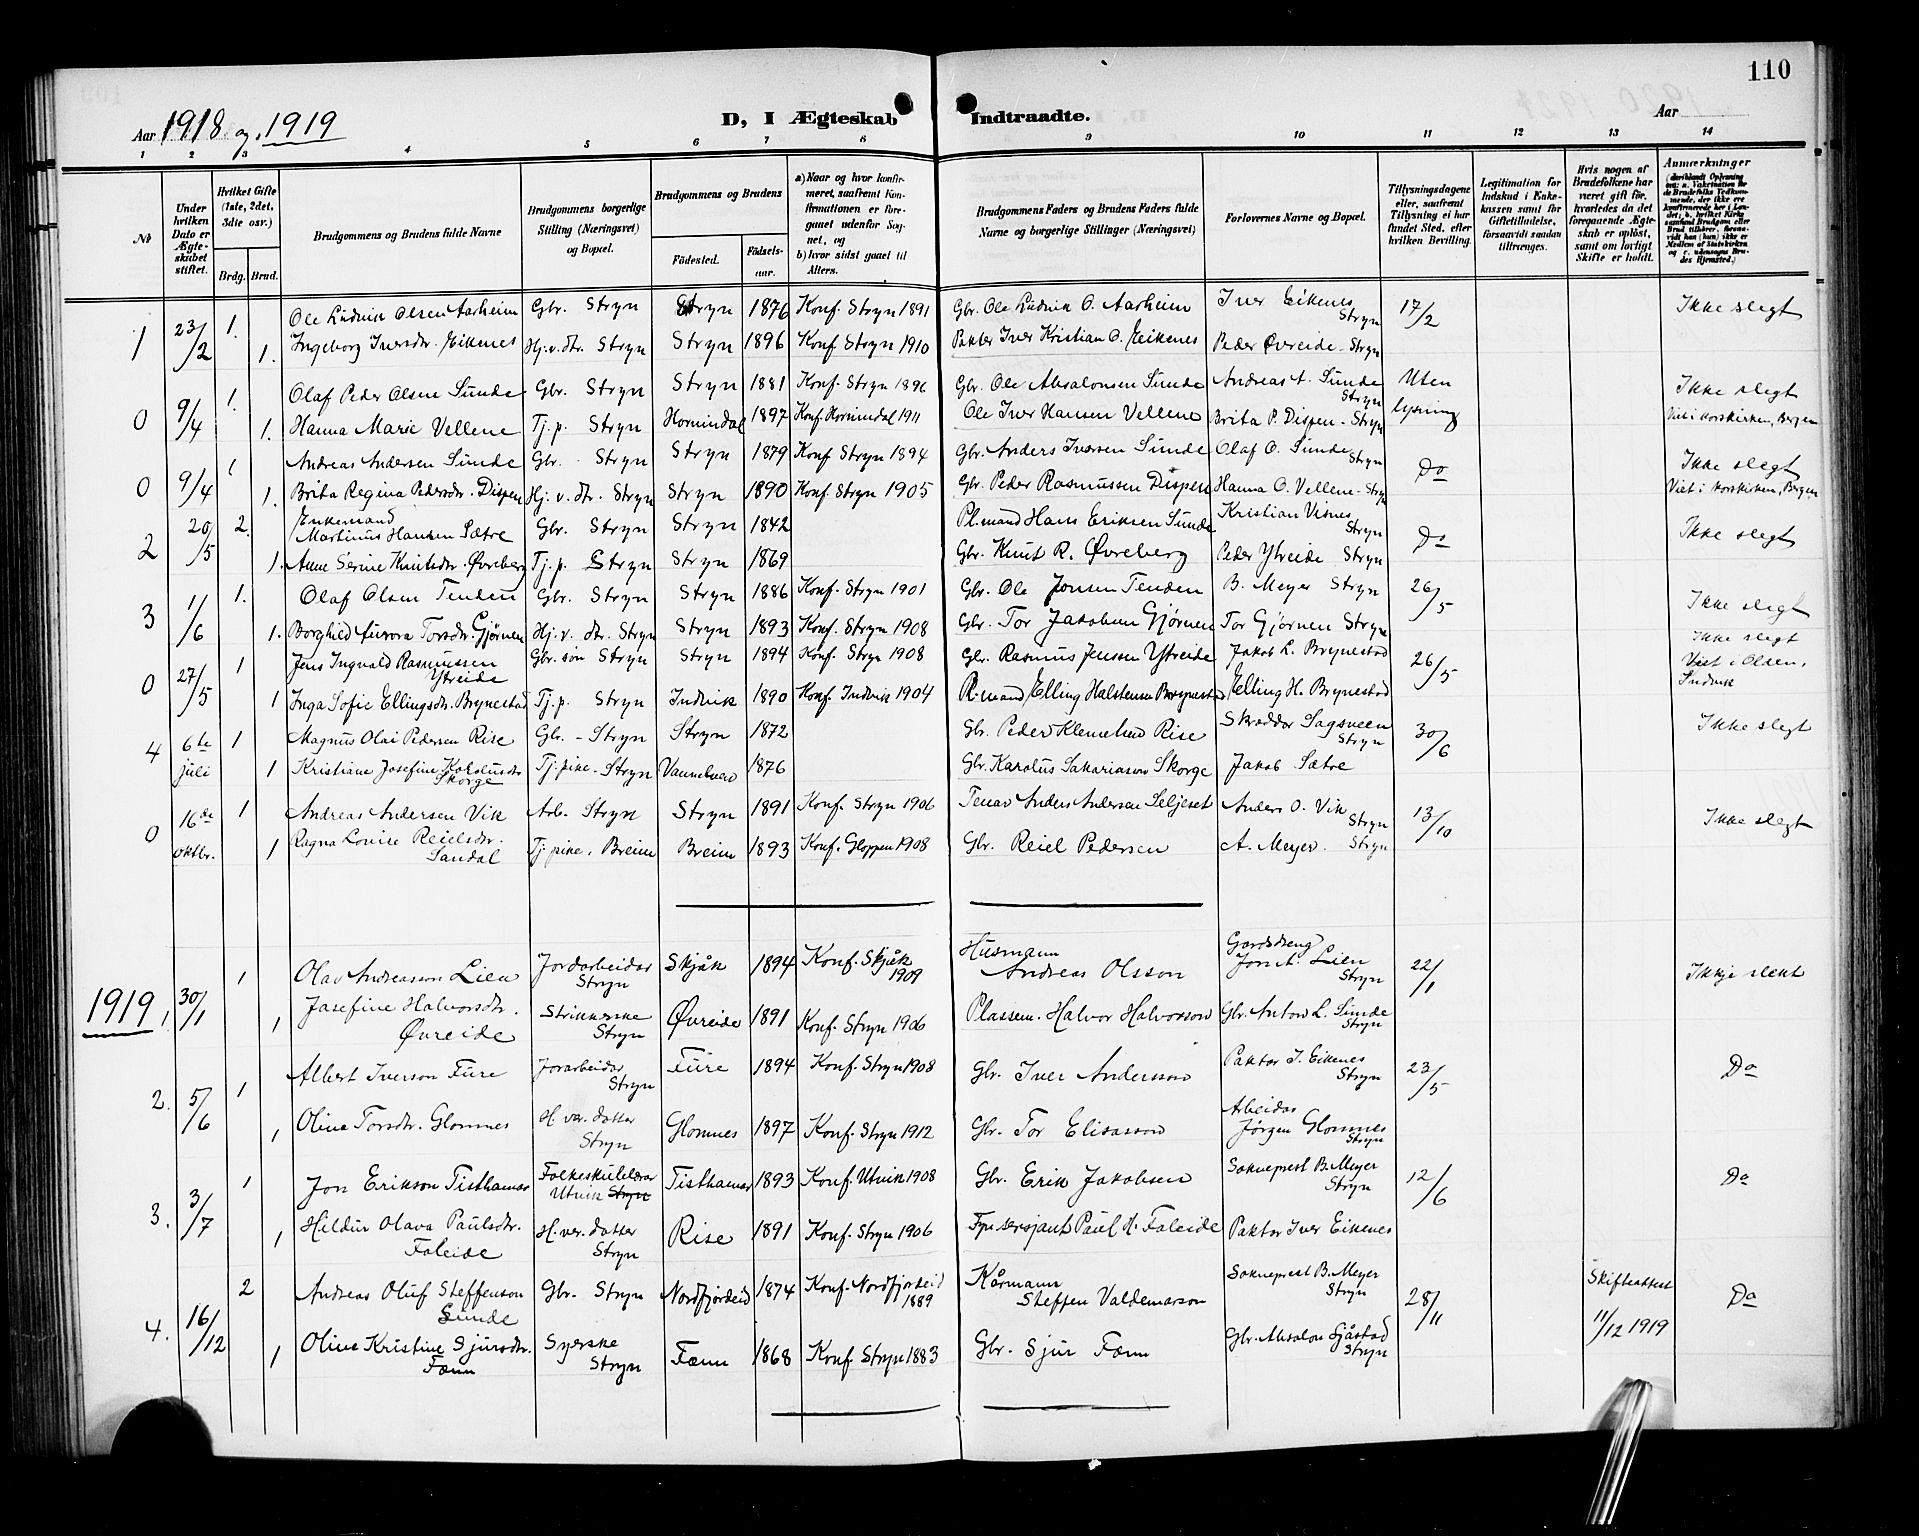 110
Aar 1918 og. 1919
D, I Ægteskab Indtraadte.
Aar
1 2 3 4 5 6 7 8 9 10 11 12 13 14
No
Under hvilken Dato er Ægteskabet stiftet.
Hvilket Gifte (1ste, 2det, 3die osv.)
Brdg. Brud.
Brudgommens og Brudens fulde Navne
Brudgommens borgerlige Stilling (Næringsvei) og Bopæl.
Brudgommens og Brudens
Födested. Födselsaar.
a) Naar og hvor konfirmeret, saafremt Konfirmationen er foregaaet udenfor Sognet, og
b) hvor sidst gaaet til Alters.
Brudgommens Faders og Brudens Faders fulde Navne og borgerlige Stillinger (Næringsvei)
Forlovernes Navne og Bopæl.
Tillysningsdagene eller, saafremt Tillysning ei har fundet Sted, efter hvilken Bevilling.
Legitimation for Indskud i Enkekassen samt for Giftetilladelse, forsaavidt saadan tiltrænges.
Hvis nogen af Brudefolkene har været gift før, hvorledes da det foregaaende Ægteskab er oplöst, samt om lovligt Skifte er holdt.
Anmærkninger
1 23/2 1. Ole Ludvik Olsen Aarheim Gbr. Stryn Stryn 1876 Konf Stryn 1891 Gbr. Ole Ludvik O. Aarheim Iver Eikenes Stryn 17/2 Ikke slegt
1. Ingeborg Iversdr. Eikenes Hj.v.dtr. Stryn Stryn 1896 Konf Stryn 1910 Pakter Iver Kristian O. Eikenes Peder Øvreide - Stryn
0 9/4 1. Olaf Peder Olsen Sunde Gbr. Stryn Stryn 1881 Konf- Stryn 1896 Gbr. Ole Absalonsen Sunde Andreas A. Sunde Stryn Uten lysning Ikke slegt
1. Hanna Marie Vellene Tj.p. Stryn Hornindal 1897 Konf Hornindal 1911 Ole Iver Hansen Vellene Brita P. Dispen - Stryn Viet i Korskirken, Bergen
0 9/4 1 Andreas Andersen Sunde Gbr. Stryn Stryn 1879 Konf Stryn 1894 Gbr. Anders Iversen Sunde Olaf O. Sunde Stryn Do Ikke slegt
1. Brita Regina Pedersdr. Dispen Hj. v. dtr. Stryn Stryn 1890 Konf. Stryn 1905 Gbr. Peder Rasmussen Dispen Hanna O. Vellene - Stryn Viet i Korskirken, Bergen
2 20/5 2. Enkemand Martinus Hansen Sætre Gbr. Stryn Stryn 1842 Pl.mand Hans Eriksen Sunde Kristian Visnes Stryn Do Ikke slegt
1. Anne Serine Knutsdr. Øvreberg Tj.p. Stryn Stryn 1869 Gbr. Knut R. Øvreberg Peder Ytreide Stryn
3 1/6 1. Olaf Olsen Tenden Gbr. Stryn Stryn 1886 Konf- Stryn 1901 Gbr. Ole Jonsen Tenden B. Meyer Stryn 26/5 Ikke slegt
1. Borghild Aurora Torsdr. Gjørnen Hj. v. dtr. Stryn Stryn 1893 Konf. Stryn 1908 Gbr. Tor Jakobsen Gjørnen Tor Gjørnen Stryn
0 27/5 1 Jens Ingvald Rasmussen Ytreide Gbr. søn Stryn Stryn 1894 Konf. Stryn 1908 Gbr. Rasmus Jensen Ytreide Jakob L. Brynestad 26/5 Ikke slegt
1 Inga Sofie Ellingsdr. Brynestad Tj.p. Stryn Indvik 1890 Konf. Indvik 1904 Pl.mand Elling Halstensen Brynestad Elling H. Brynestad Viet i Olsen, Indvik
4 6te juli 1 Magnus Olai Pedersen Rise Gbr. - Stryn Stryn 1872 Gbr. Peder Klemetsen Rise Skrædder Sagsveen Stryn 30/6 Ikke slegt
1 Kristiane Josefine Karolusdr. Skorge Tj. pike - Stryn Vannelven 1876 Gbr. Karolus Sakariassen Skorge Jakob Sætre
0 16de oktbr. 1 Andreas Andersen Vik Arb. Stryn Stryn 1891 Konf- Stryn 1906 Anders Andersen Seljeset Anders O. Vik Stryn 13/10 Ikke slegt
1 Ragna Lovise Reielsdr. Sandal Tj. pike. Breim Breim 1893 Konf Gloppen 1908 Gbr. Reiel Pedersen A. Meyer. Stryn
1919
1. 30/1 1 Olav Andreasson Lien Jordarbeidar Stryn Skjåk 1894 Konf. Skjåk 1909 Husmann Andreas Olsson Gardsdreng Jon A. Lien Stryn 22/1 Ikkje slekt
1 Josefine Halvorsdtr. Øvreide Strikkerske Stryn Øvreide 1891 Konf. Stryn 1906 Plassem. Halvor Halvorson Gbr. Anton L. Sunde Stryn
2. 5/6 1 Albert Iverson Fure Jorarbeidar Stryn Fure 1894 Konf. Stryn 1908 Gbr. Iver Andersson Paktar I. Eikenes Stryn 23/5 Do
1 Olina Torsdtr. Glomnes H. ver. dotter Stryn Glomnes 1897 Konf- Stryn 1912 Gbr. Tor Eliasson Arbeidar Jørgen Glomnes Stryn
3. 3/7 1 Jon Erikson Tisthamar Folkeskulelærar Utvik Stryn Tisthamar 1893 Konf. Utvik 1908 Gbr. Erik Jakobsen Sokneprest B. Meyer Stryn 12/6 Do
1 Hildur Olava Paulsdtr. Faleide H. ver. dotter Stryn Rise 1891 Konf. Stryn 1906 sersjant Paul H. Faleide Paktar Iver Eikenes
4. 16/12 2 Andreas Oluf Steffenson Sunde Gbr. Stryn Nordfjordeid 1874 Konf. Nordfjordeid 1889 Kårmann Steffen Valdemarson Sokneprest B. Meyer Stryn 28/11 Skifteattest 11/12 1919 Do
1 Oline Kristine Sjursdtr. Fænn Syerske Stryn Fænn 1868 Konf Stryn 1883 Gbr. Sjur Fænn Gbr. Absalon Sjåstad Stryn